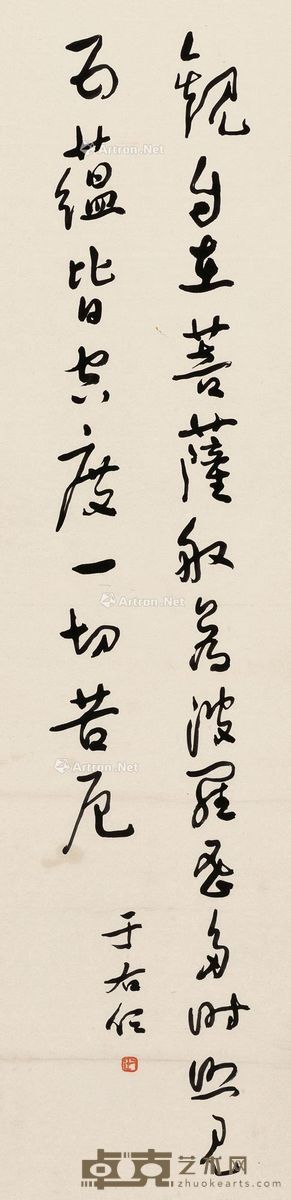 觀自在菩薩般若波羅蜜多時照見
五蘊皆空度一切苦厄
于右任
Artron.Net
Artron.Net
Artron.Net
卓克艺术网
zhuokearts.com